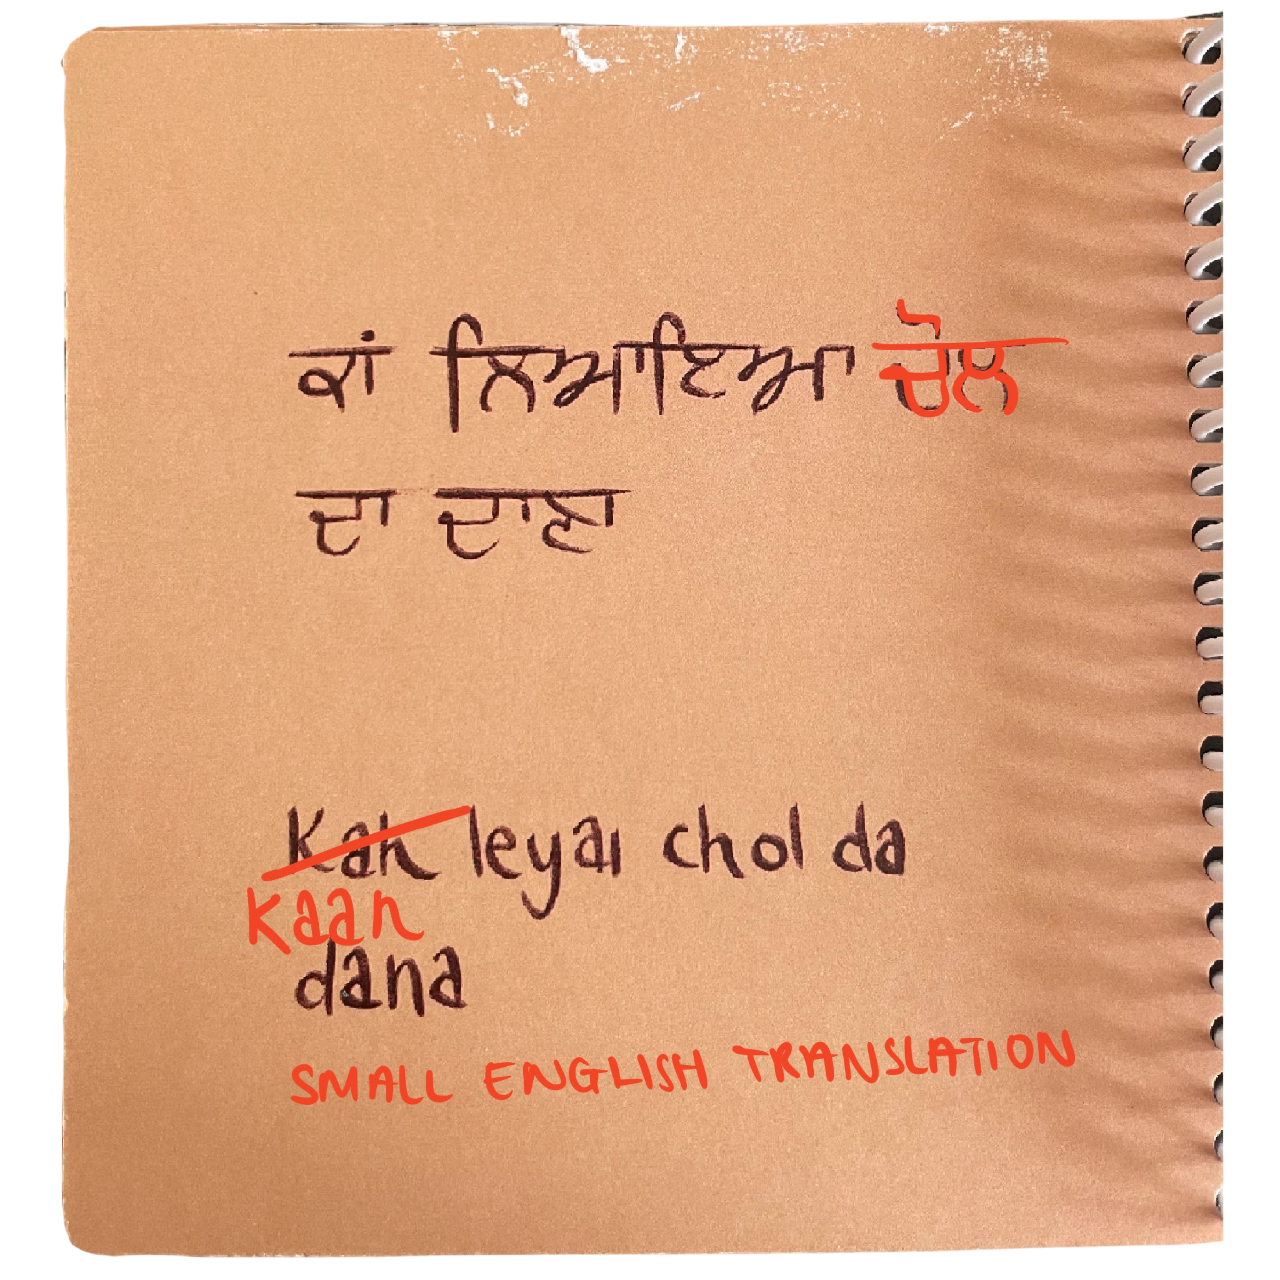 ਕਾਂ ਲਿਆਇਆ ਚੌਲ
ਦਾ ਦਾਣਾ
Kah leyai chol da
kaan
dana
SMALL ENGLISH TRANSLATION